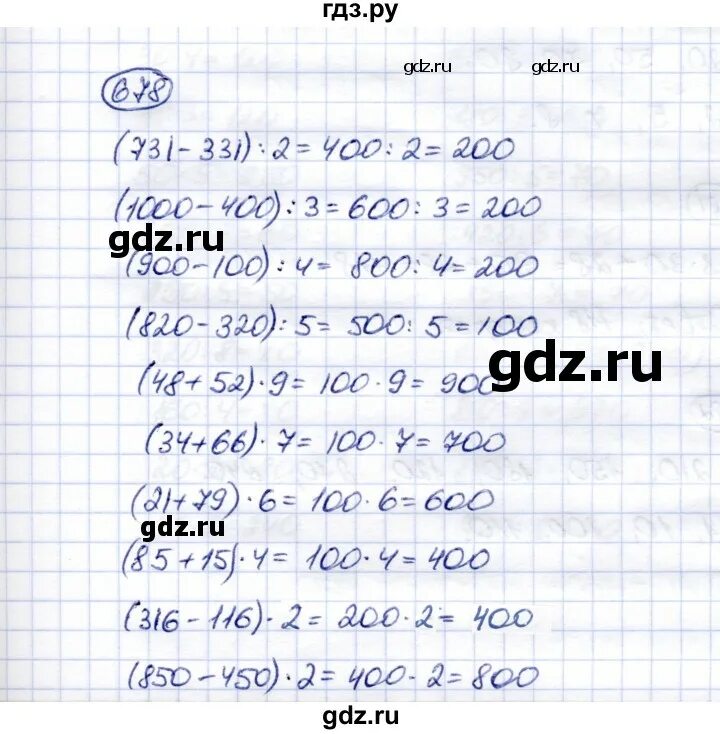 гдз.ру
gdz.ru gdz.ru
678
(731-331):2=400:2=200
(1000-400):3=600:3=200
gdz.ru
(900-100):4=800:4=200
(820-320):5=500:5=100
gdz.ru
(48+52)·9=100·9=900
(34+66)·7=100·7=700
(21+79)·6=100·6=600
gdz.ru
(85+15)·4=100·4=400
(316-116)·2=200·2=400
(850-450)·2=400·2=800
gdz.ru